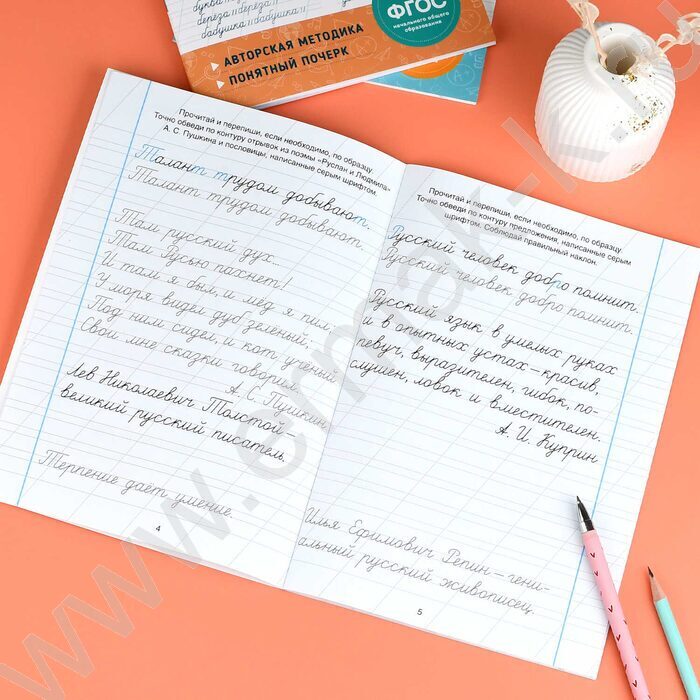 буква
берёза берёза
бабушка бабушка
ФГОС
начального общего
образования
АВТОРСКАЯ МЕТОДИКА
ПОНЯТНЫЙ ПОЧЕРК
Прочитай и перепиши, если необходимо, по образцу.
Точно обведи по контуру отрывок из поэмы «Руслан и Людмила»
А. С. Пушкина и пословицы, написанные серым шрифтом.
Талант трудом добывают.
Талант трудом добывают.
Там русский дух...
Там Русью пахнет!
И там я был, и мёд я пил;
У моря видел дуб зелёный;
Под ним сидел, и кот учёный
Свои мне сказки говорил.
А. С. Пушкин
Лев Николаевич Толстой –
великий русский писатель.
Терпение даёт умение.
4
Прочитай и перепиши, если необходимо, по образцу.
Точно обведи по контуру предложения, написанные серым
шрифтом. Соблюдай правильный наклон.
Русский человек добро помнит.
Русский человек добро помнит.
Русский язык в умелых руках
и в опытных устах – красив,
певуч, выразителен, гибок, по-
слушен, ловок и вместителен.
А. И. Куприн
Илья Ефимович Репин – гени-
альный русский живописец.
5